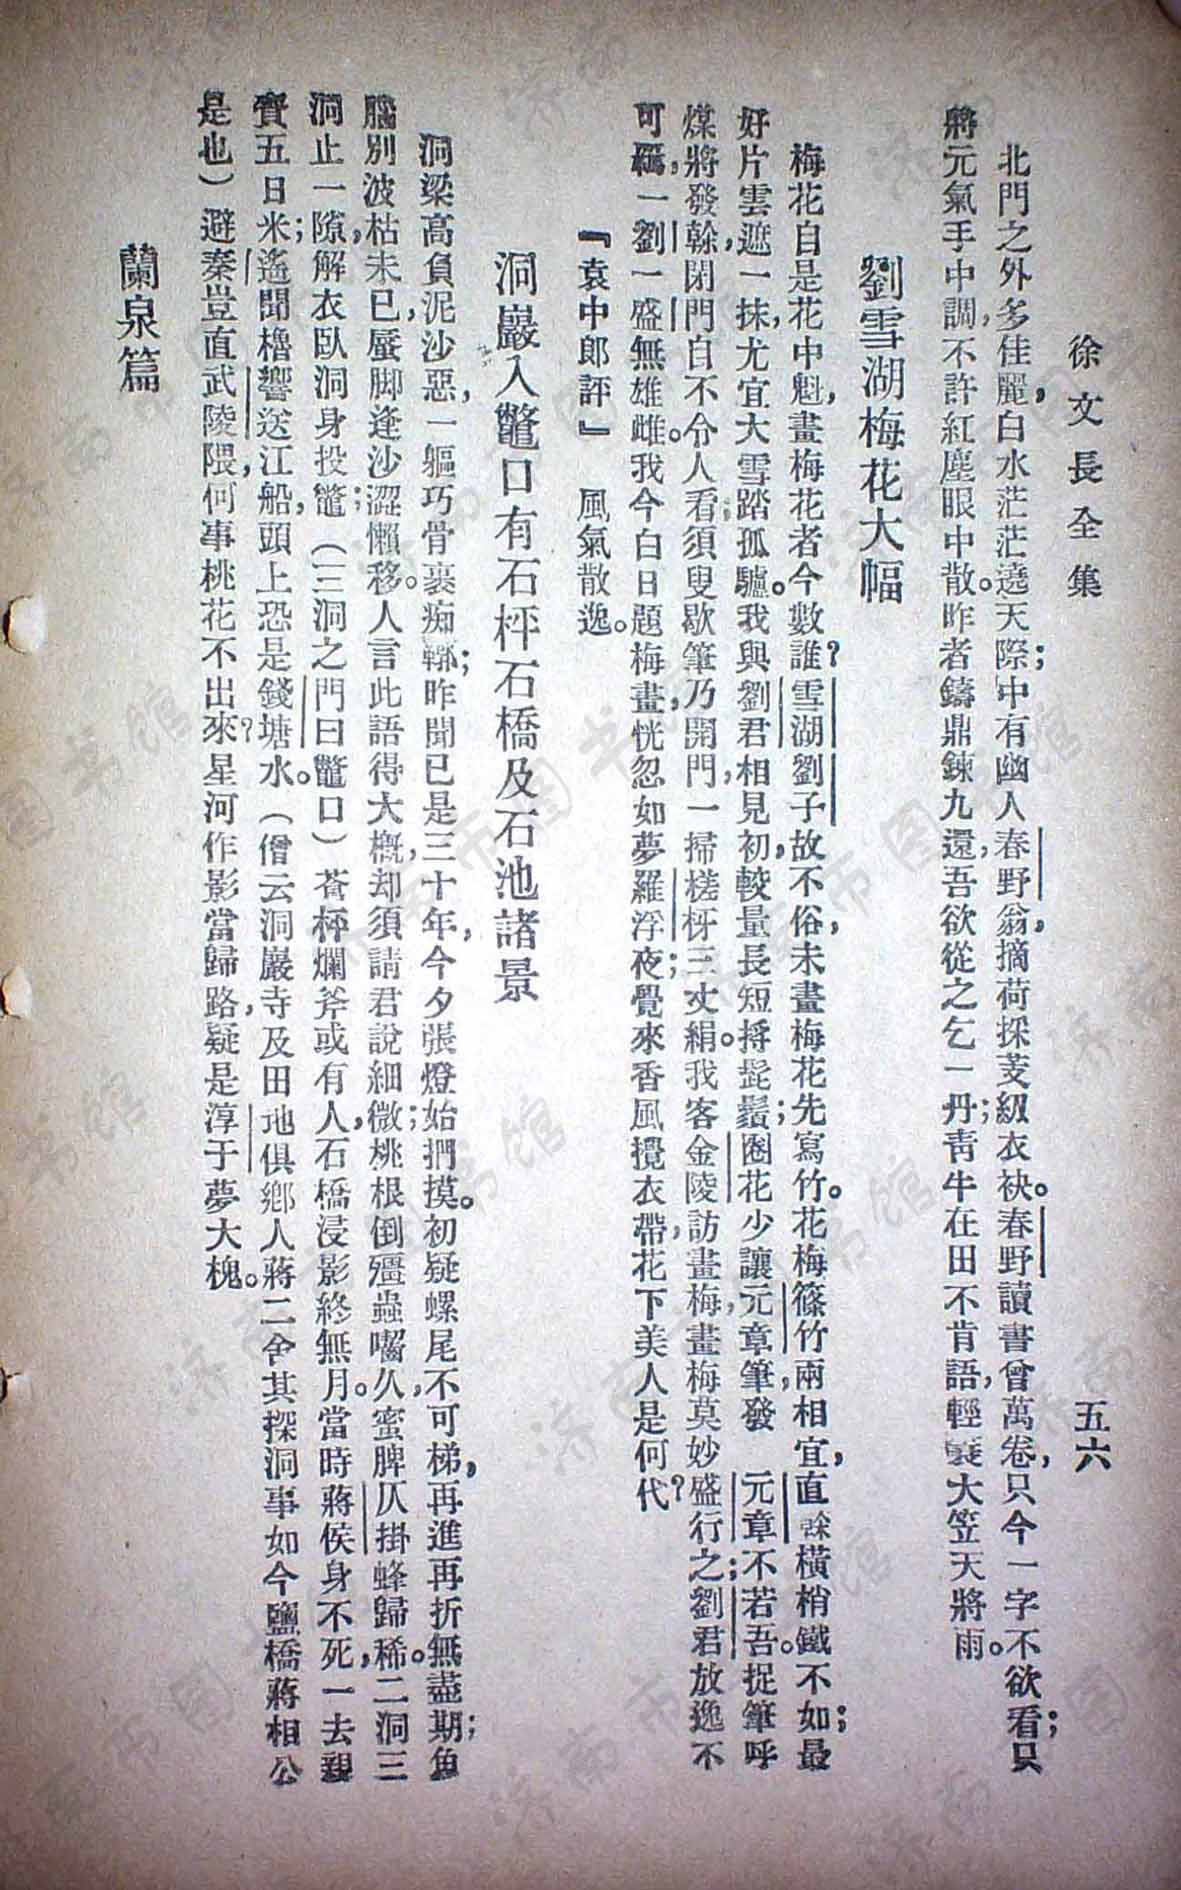 徐文長全集
五六
北門之外多佳麗，白水茫茫遶天際；中有幽人春野翁，摘荷採芰級衣袂。春野讀書曾萬卷，只今一字不欲看；只
將元氣手中調，不許紅塵眼中散。昨者鑄鼎鍊九還，吾欲從之乞一丹；青牛在田不肯語，輕蓑大笠天將雨。
劉雪湖梅花大幅
梅花自是花中魁，畫梅花者今數誰？雪湖劉子故不俗，未畫梅花先寫竹。花梅篠竹兩相宜，直榦橫梢鐵不如；最
好片雲遮一抹，尤宜大雪踏孤驢。我與劉君相見初，較量長短捋髭鬚；圈花少讓元章筆，發　元章不若吾。捉筆呼
煤將發榦，閉門白不令人看；須叟歇筆乃開門，一掃槎枒三丈絹。我客金陵訪畫梅，畫梅莫妙盛行之；劉君放逸不
可羈，一劉一盛無雄雌。我今白日題梅畫，恍忽如夢羅浮夜；覺來香風攪衣帶，花下美人是何代？
『袁中郎評』　風氣散逸。
洞巖入鼈口有石枰石橋及石池諸景
洞梁高負泥沙惡，一軀巧骨裹痴鞹；昨聞已是三十年，今夕張燈始捫摸。初疑螺尾不可梯，再進再折無盡期；魚
腦別波枯未已，蜃脚逢沙澀懶移。人言此語得大概，却須請君說細微；桃根倒殭蟲囓久，蜜脾仄掛蜂歸稀。二洞三
洞止一隙，解衣臥洞身投鼈（三洞之門曰鼈口）蒼枰爛斧或有人，石橋浸影終無月。當時蔣侯身不死，一去親
賫五日米；遙聞櫓響送江船，頭上恐是錢塘水。（僧云洞巖寺及田地俱鄉人蔣二舍其探洞事如今鹽橋蔣相公
是也）避秦豈直武陵隈，何事桃花不出來？星河作影當歸路，疑是淳于夢大槐。
蘭泉篇